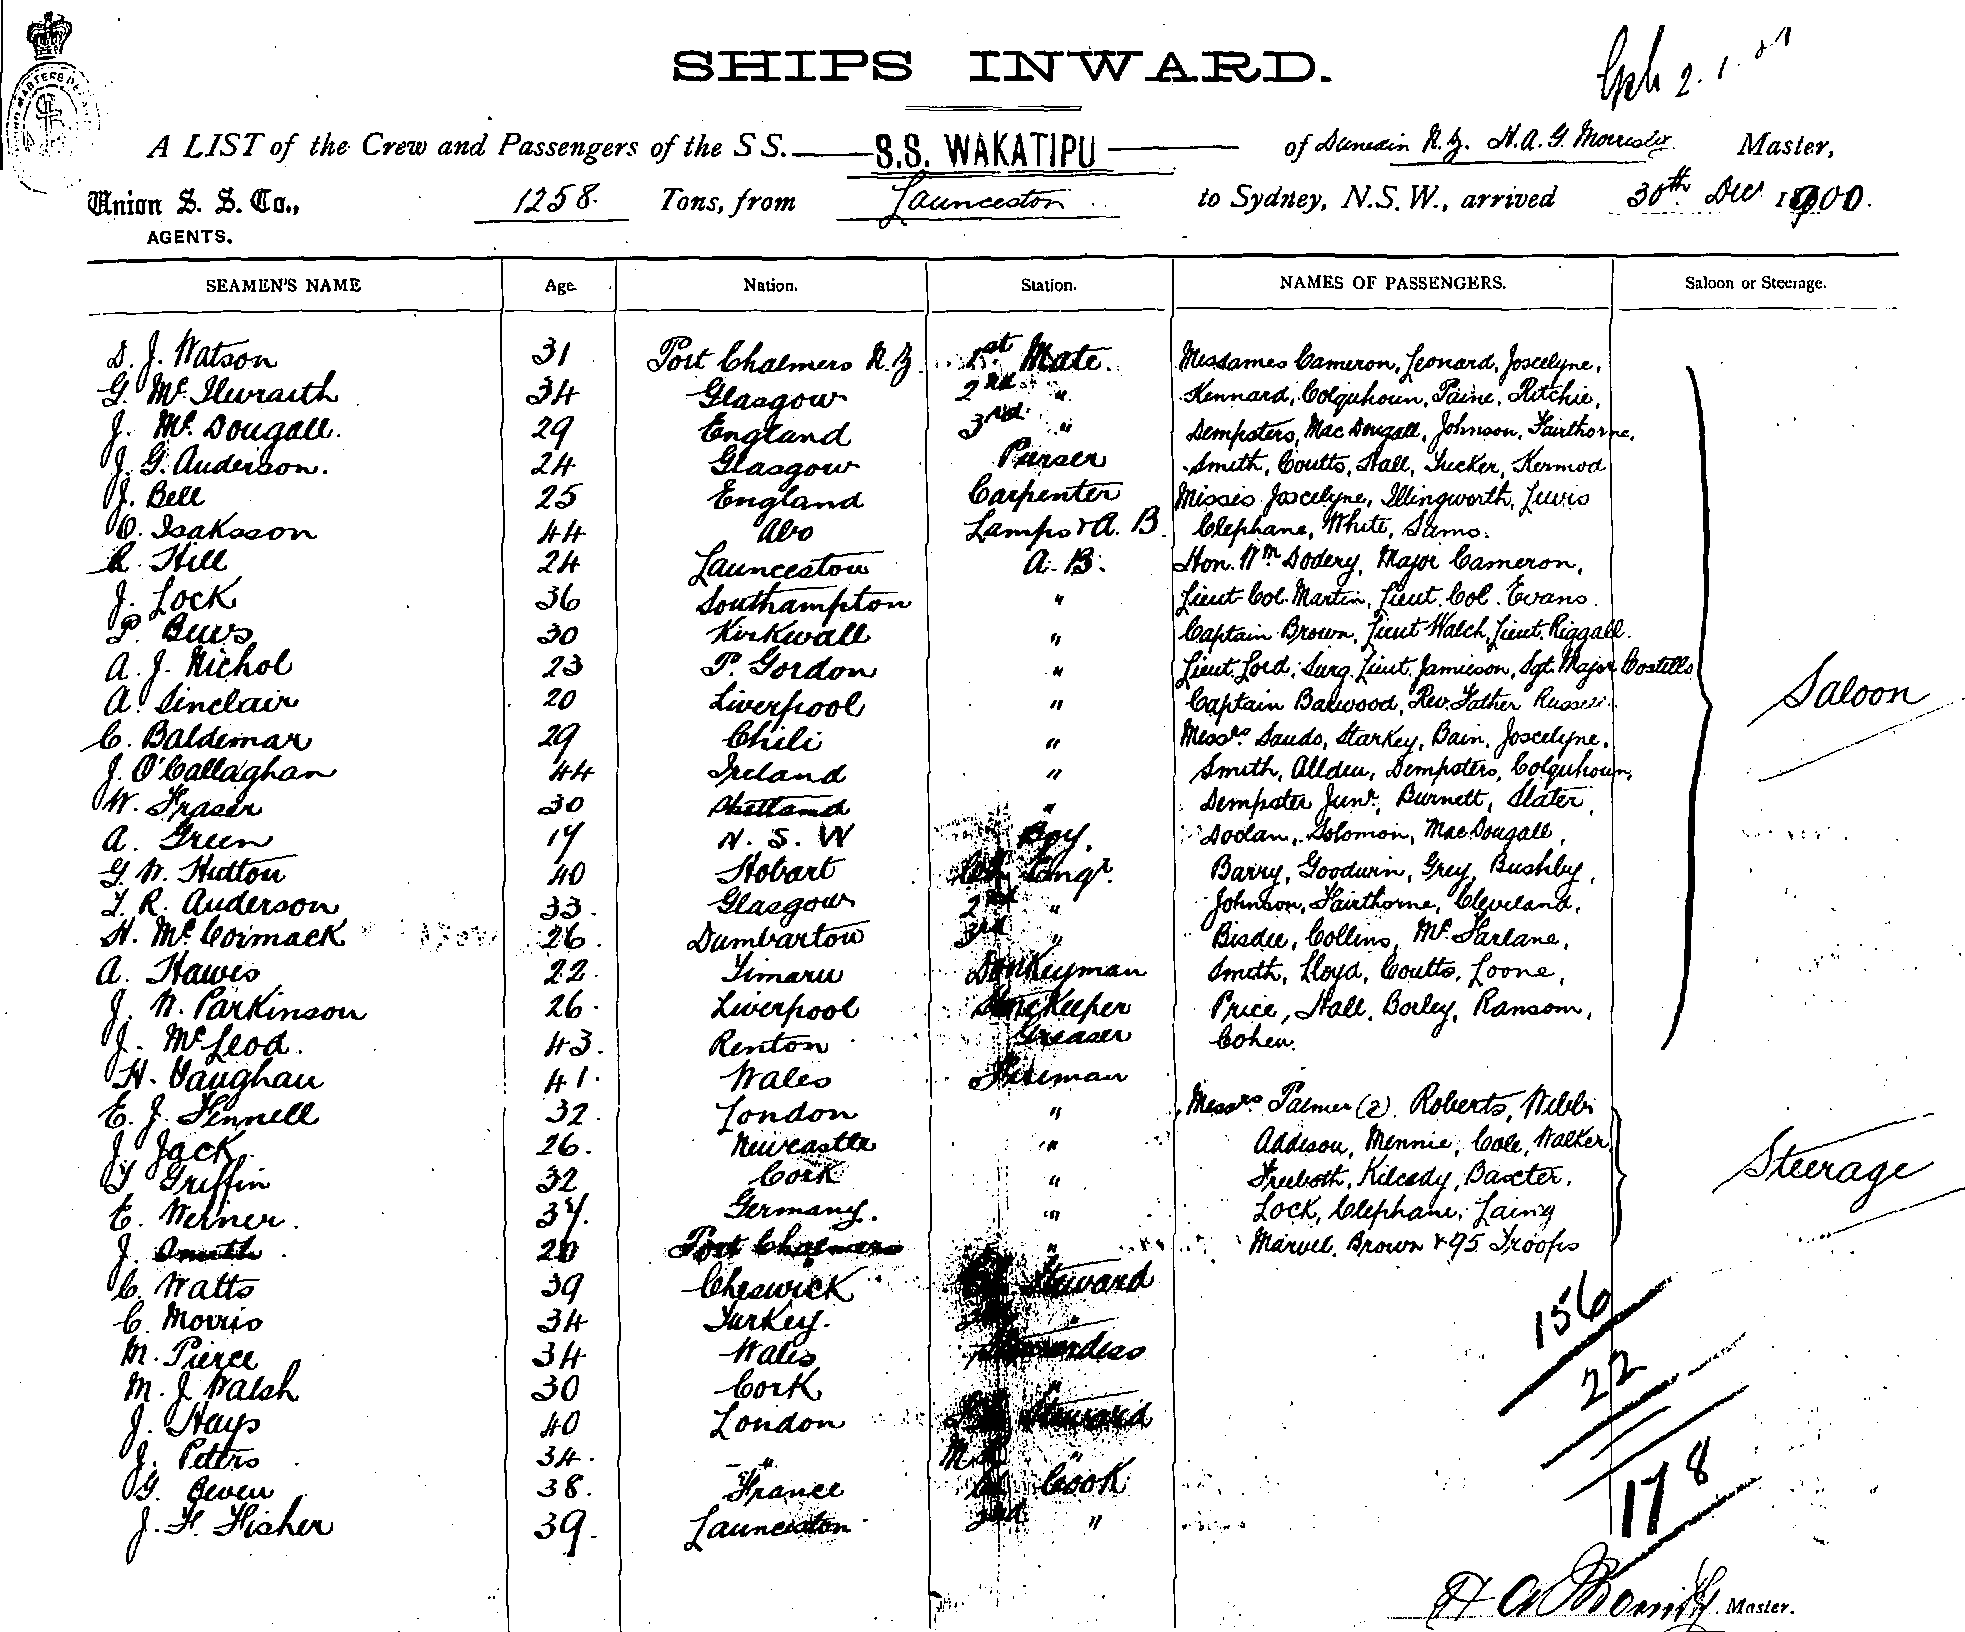 SHIPS INWARD.
2.1.01
A LIST of the Crew and Passengers of the SS. S.S. WAKATIPU of Dunedin N.Z. H.A.G. Morrisby Master,
Union S. S. Co., 1258. Tons, from Launceston to Sydney, N.S.W., arrived 30th Dec 1900.
AGENTS.
SEAMEN'S NAME Age. Nation. Station. NAMES OF PASSENGERS. Saloon or Steerage.
D. J. Watson 31 Port Chalmers N.Z. 1st Mate. Mesdames Cameron, Leonard, Joscelyne,
G. Mc. Ilwraith 34 Glasgow 2nd " Kennard, Colquhoun, Paine, Ritchie,
J. Mc. Dougall. 29 England 3rd " Dempsters, MacDougall, Johnson, Fairthorne,
J. G. Anderson. 24 Glasgow Purser Smith, Coutts, Hall, Tucker, Kermod
J. Bell 25 England Carpenter Misses Joscelyne, Illingworth, Lewis
O. Isaksson 44 Abo Lamps & A. B. Clephane, White, Sams.
R. Hill 24 Launceston A. B. Hon. Wm. Dodery, Major Cameron,
J. Lock 36 Southampton " Lieut. Col. Martin, Lieut. Col. Evans.
P. Buws 30 Kirkwall " Captain Brown, Lieut Walch, Lieut. Riggall.
A. J. Nichol 23 P. Gordon " Lieut. Lord, Surg. Lieut. Jamieson, Sgt. Major Costello
A. Sinclair 20 Liverpool " Captain Barwood, Rev. Father Russell. Saloon
C. Baldemar 29 Chili " Messrs. Sands, Starkey, Bain, Joscelyne,
J. O'Callaghan 44 Ireland " Smith, Allden, Dempsters, Colquhoun,
W. Fraser 30 Shetland " Dempster Junr., Burnett, Slater,
A. Green 17 N. S. W Boy. Dodan, Solomon, MacDougall,
G. W. Hutton 40 Hobart Ch. Engr. Barry, Goodwin, Grey, Bushby,
T. R. Anderson 33. Glasgow 2nd " Johnson, Fairthorne, Cleveland,
H. Mc. Cormack 26. Dumbarton 3rd " Bisdee, Collins, Mc. Farlane,
A. Hawes 22. Timaru Donkeyman Smith, Lloyd, Coutts, Loone,
J. W. Parkinson 26. Liverpool Storekeeper Price, Hall, Borley, Ransom,
J. McLeod. 43. Renton Greaser Cohen.
H. Vaughan 41. Wales Fireman
E. J. Fennell 32. London " Messrs Palmer (2). Roberts, Webb
J. Jack 26. Newcastle " Addison, Mennie, Cole, Walker
T. Griffin 32 Cork " Freeboth, Kilcedy, Baxter. Steerage
E. Werner. 37. Germany. " Lock, Clephane, Laing
J. Smith. 20 Port Chalmers " Marvel. Brown & 95 Troops
C. Watts 39 Cheswick Steward
C. Morris 34 Turkey. "
M. Pierce 34 Wales Stewardess
M. J. Walsh 30 Cork "
J. Hays 40 London Steward
J. Peters 34. " "
G. Beven 38. France Cook
J. H. Fisher 39. Launceston 2nd "
156
22
178
H A G Morrisby. Master.